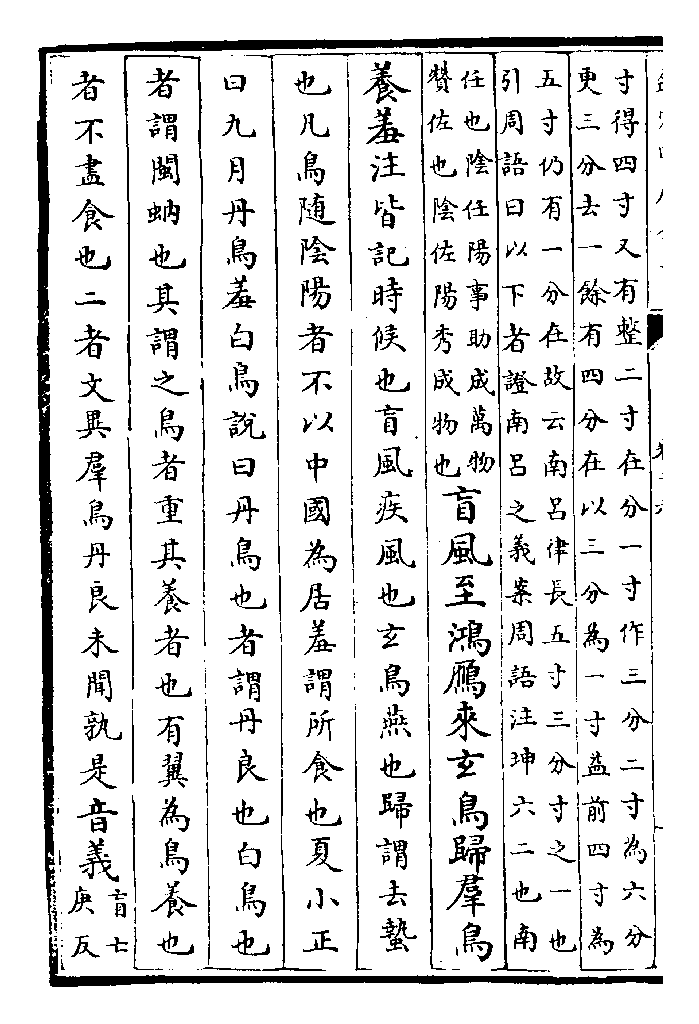 寸得四寸又有整二寸在分一寸作三分二寸為六分
更三分去一餘有四分在以三分為一寸益前四寸為
五寸仍有一分在故云南吕律長五寸三分寸之一也
引周語曰以下者證南吕之義案周語注坤六二也南
任也陰任陽事助成萬物
贊佐也陰佐陽秀成物也
盲風至鴻鴈來玄鳥歸羣鳥
養羞注皆記時候也盲風疾風也玄鳥燕也歸謂去蟄
也凡鳥随陰陽者不以中國為居羞謂所食也夏小正
曰九月丹鳥羞白鳥說曰丹鳥也者謂丹良也白鳥也
者謂閩蚋也其謂之鳥者重其養者也有翼為鳥養也
者不盡食也二者文異羣鳥丹良未聞孰是音義
盲七
庚反